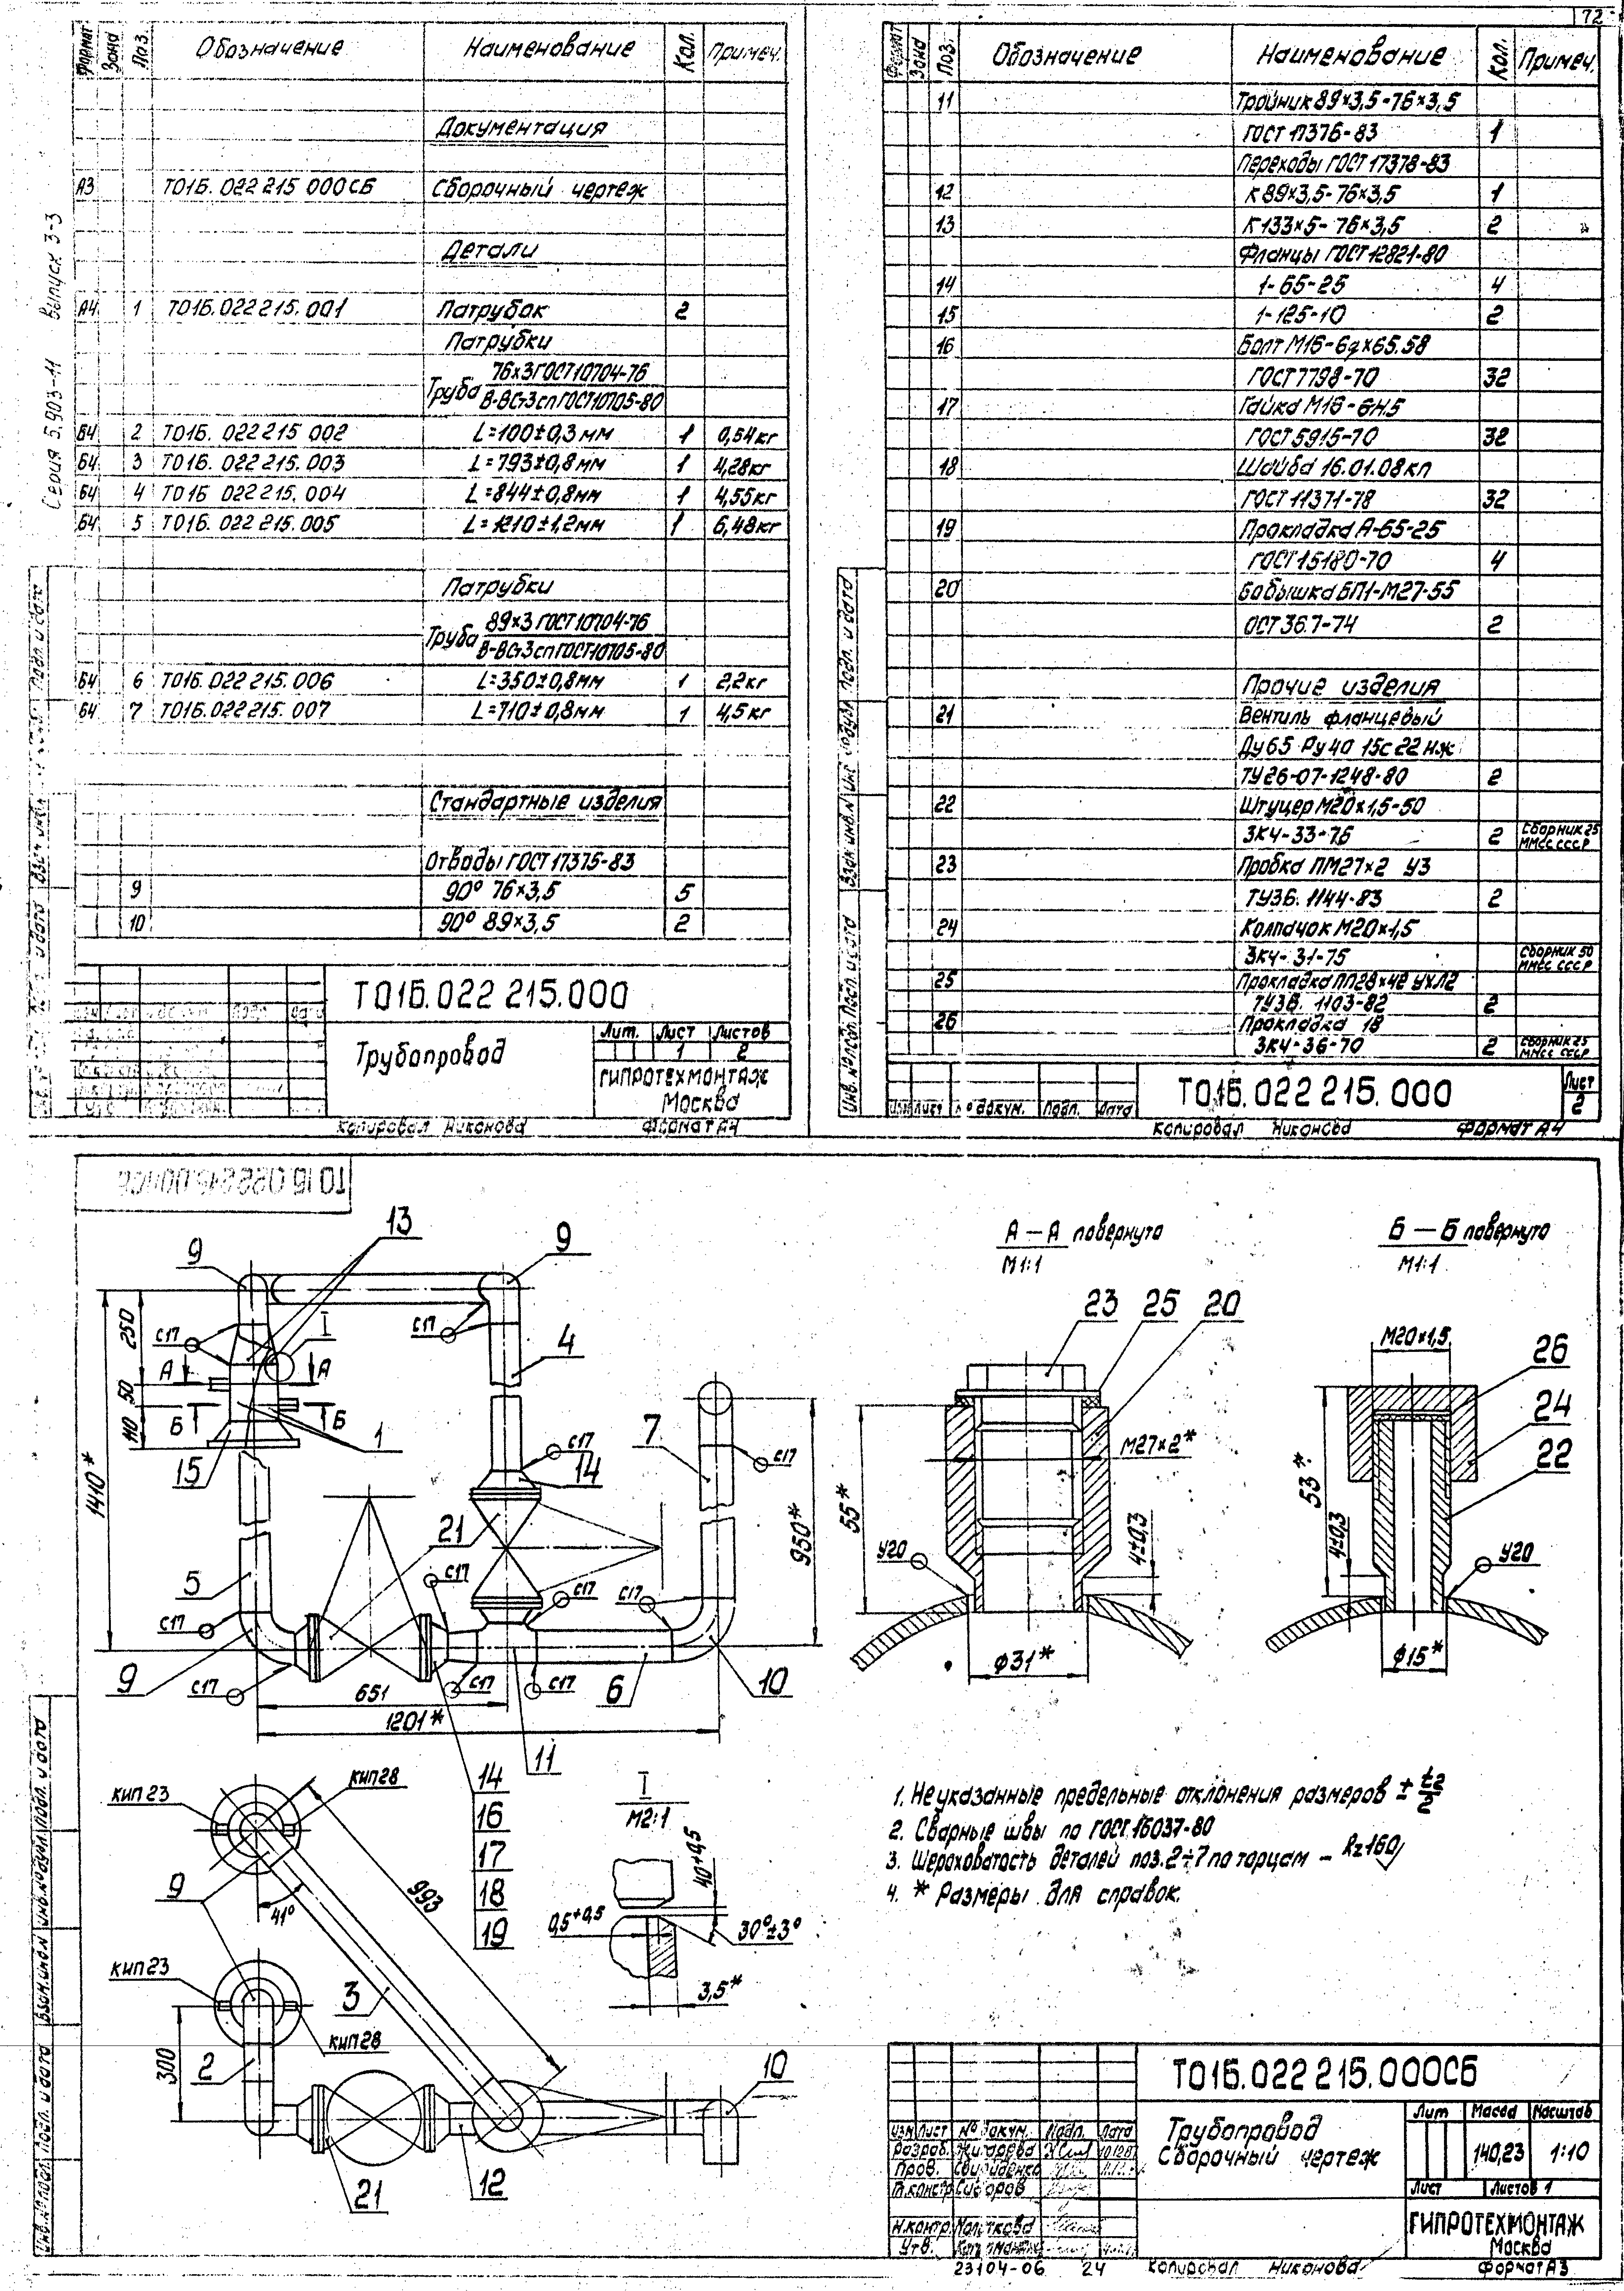 72
Серия 5.903-11 Выпуск 3-3
Формат Зона Поз. Обозначение Наименование Кол. Примеч.
Документация
А3 Т01Б.022 215 000СБ Сборочный чертеж
Детали
А4 1 Т01Б.022 215.001 Патрубок 2
Патрубки
Труба 76×3 ГОСТ 10704-76
В-ВСт3сп ГОСТ 10705-80
Б4 2 Т01Б.022 215 002 L=100±0,3мм 1 0,54кг
Б4 3 Т01Б.022 215.003 L=793±0,8мм 1 4,28кг
Б4 4 Т01Б 022 215.004 L=844±0,8мм 1 4,55кг
Б4 5 Т01Б.022 215.005 L=1210±1,2мм 1 6,48кг
Патрубки
Труба 89×3 ГОСТ 10704-76
В-ВСт3сп ГОСТ 10705-80
Б4 6 Т01Б.022 215.006 L=350±0,8мм 1 2,2кг
Б4 7 Т01Б.022 215.007 L=710±0,8мм 1 4,5кг
Стандартные изделия
Отводы ГОСТ 17375-83
9 90° 76×3,5 5
10 90° 89×3,5 2
Т01Б.022 215.000
Трубопровод
Лит. Лист Листов
1 2
ГИПРОТЕХМОНТАЖ
Москва
Копировал Никонова Формат А4
Формат Зона Поз. Обозначение Наименование Кол. Примеч.
11 Тройник 89×3,5-76×3,5
ГОСТ 17376-83 1
Переходы ГОСТ 17378-83
12 К 89×3,5-76×3,5 1
13 К 133×5-76×3,5 2
Фланцы ГОСТ 12821-80
14 1-65-25 4
15 1-125-10 2
16 Болт М16-6g×65.58
ГОСТ 7798-70 32
17 Гайка М16-6Н.5
ГОСТ 5915-70 32
18 Шайба 16.01.08кп
ГОСТ 11371-78 32
19 Прокладка А-65-25
ГОСТ 15180-70 4
20 Бобышка БП1-М27-55
ОСТ 36.7-74 2
Прочие изделия
21 Вентиль фланцевый
Ду65 Ру40 15с22нж
ТУ26-07-1248-80 2
22 Штуцер М20×1,5-50
ЗК4-33-76 2 Сборник 25
ММСС СССР
23 Пробка ПМ27×2 У3
ТУ36.1144-83 2
24 Колпачок М20×1,5
ЗК4-31-75 Сборник 50
ММСС СССР
25 Прокладка ПП28×42 УХЛ2
ТУ36.1103-82 2
26 Прокладка 18
ЗК4-36-70 2 Сборник 25
ММСС СССР
Т01Б.022 215.000
Лист
2
Изм Лист № докум. Подп. Дата
Копировал Никонова Формат А4
9 13 9
А — А повернуто
М1:1
Б — Б повернуто
М1:1
250
с17
I
с17
4
А А
50
Б Б
110
1
15
1410*
7
с17
с17
14
21
950*
5
с17
с17
с17
с17
9
с17
с17
с17
6
10
651
1201*
11
23 25 20
М27×2*
55*
4±0,3
У20
Ф31*
М20×1,5
26
24
22
53*
4±0,3
У20
Ф15*
14
16
17
18
19
кип 23
кип 28
9
41°
993
3
кип 23
кип 28
300
2
21
12
10
I
М2:1
40+0,5
0,5+0,5
30°±3°
3,5*
1. Неуказанные предельные отклонения размеров ± t2/2
2. Сварные швы по ГОСТ 16037-80
3. Шероховатость деталей поз.2÷7 по торцам – Rz160
4. * Размеры для справок.
Т01Б.022 215.000СБ
Трубопровод
Сборочный чертеж
Лит Масса Масштаб
140,23 1:10
Лист Листов 1
ГИПРОТЕХМОНТАЖ
Москва
Изм Лист № докум. Подп. Дата
Разраб.
Пров. Свириденко
Т.контр Сидоров
Н.контр.
Утв.
23104-06 24 Копировал Никонова Формат А3